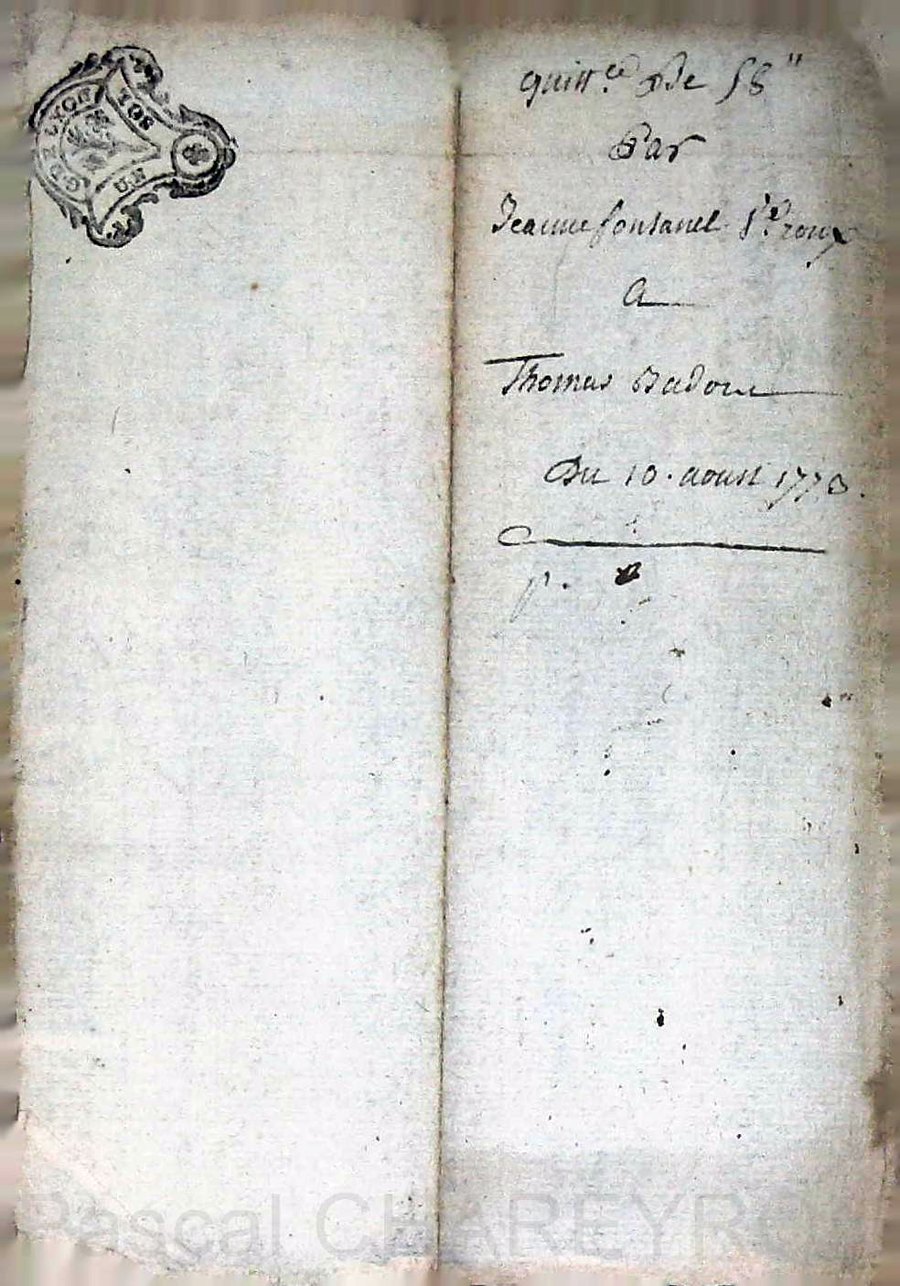 GEN LYON
UN SOL
quitt.ce De 58"
Par
Jeanne fontanel v.e roux
A
Thomas Badour
Du 10. aoust 1773.
p.
Pascal CHAREYRON